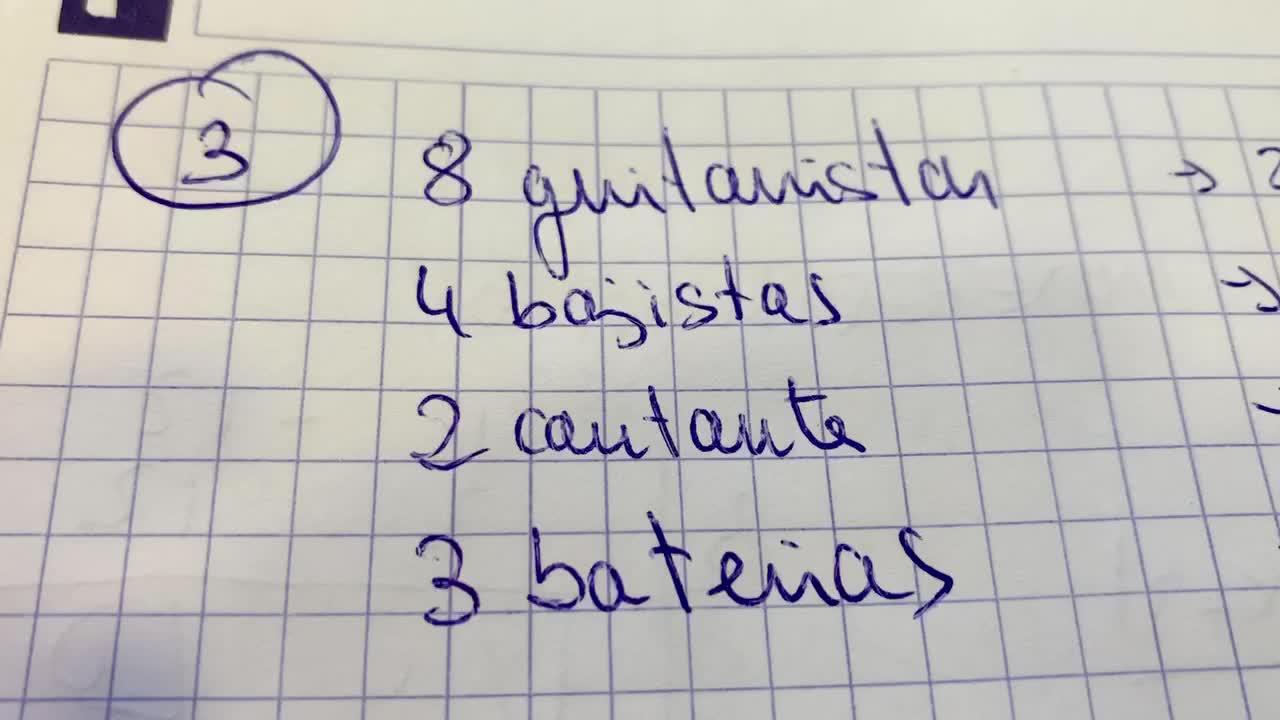 3
8 guitarristas → 2
4 bajistas →
2 cantante
3 baterias